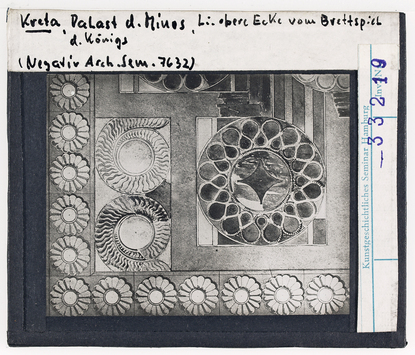 Kreta, Palast d. Minos, Li. obere Ecke vom Brettspiel
d. Königs
(Negativ Arch. Sem. 7632)
Kunstgeschichtliches Seminar Hamburg
Inv. Nr.
33219